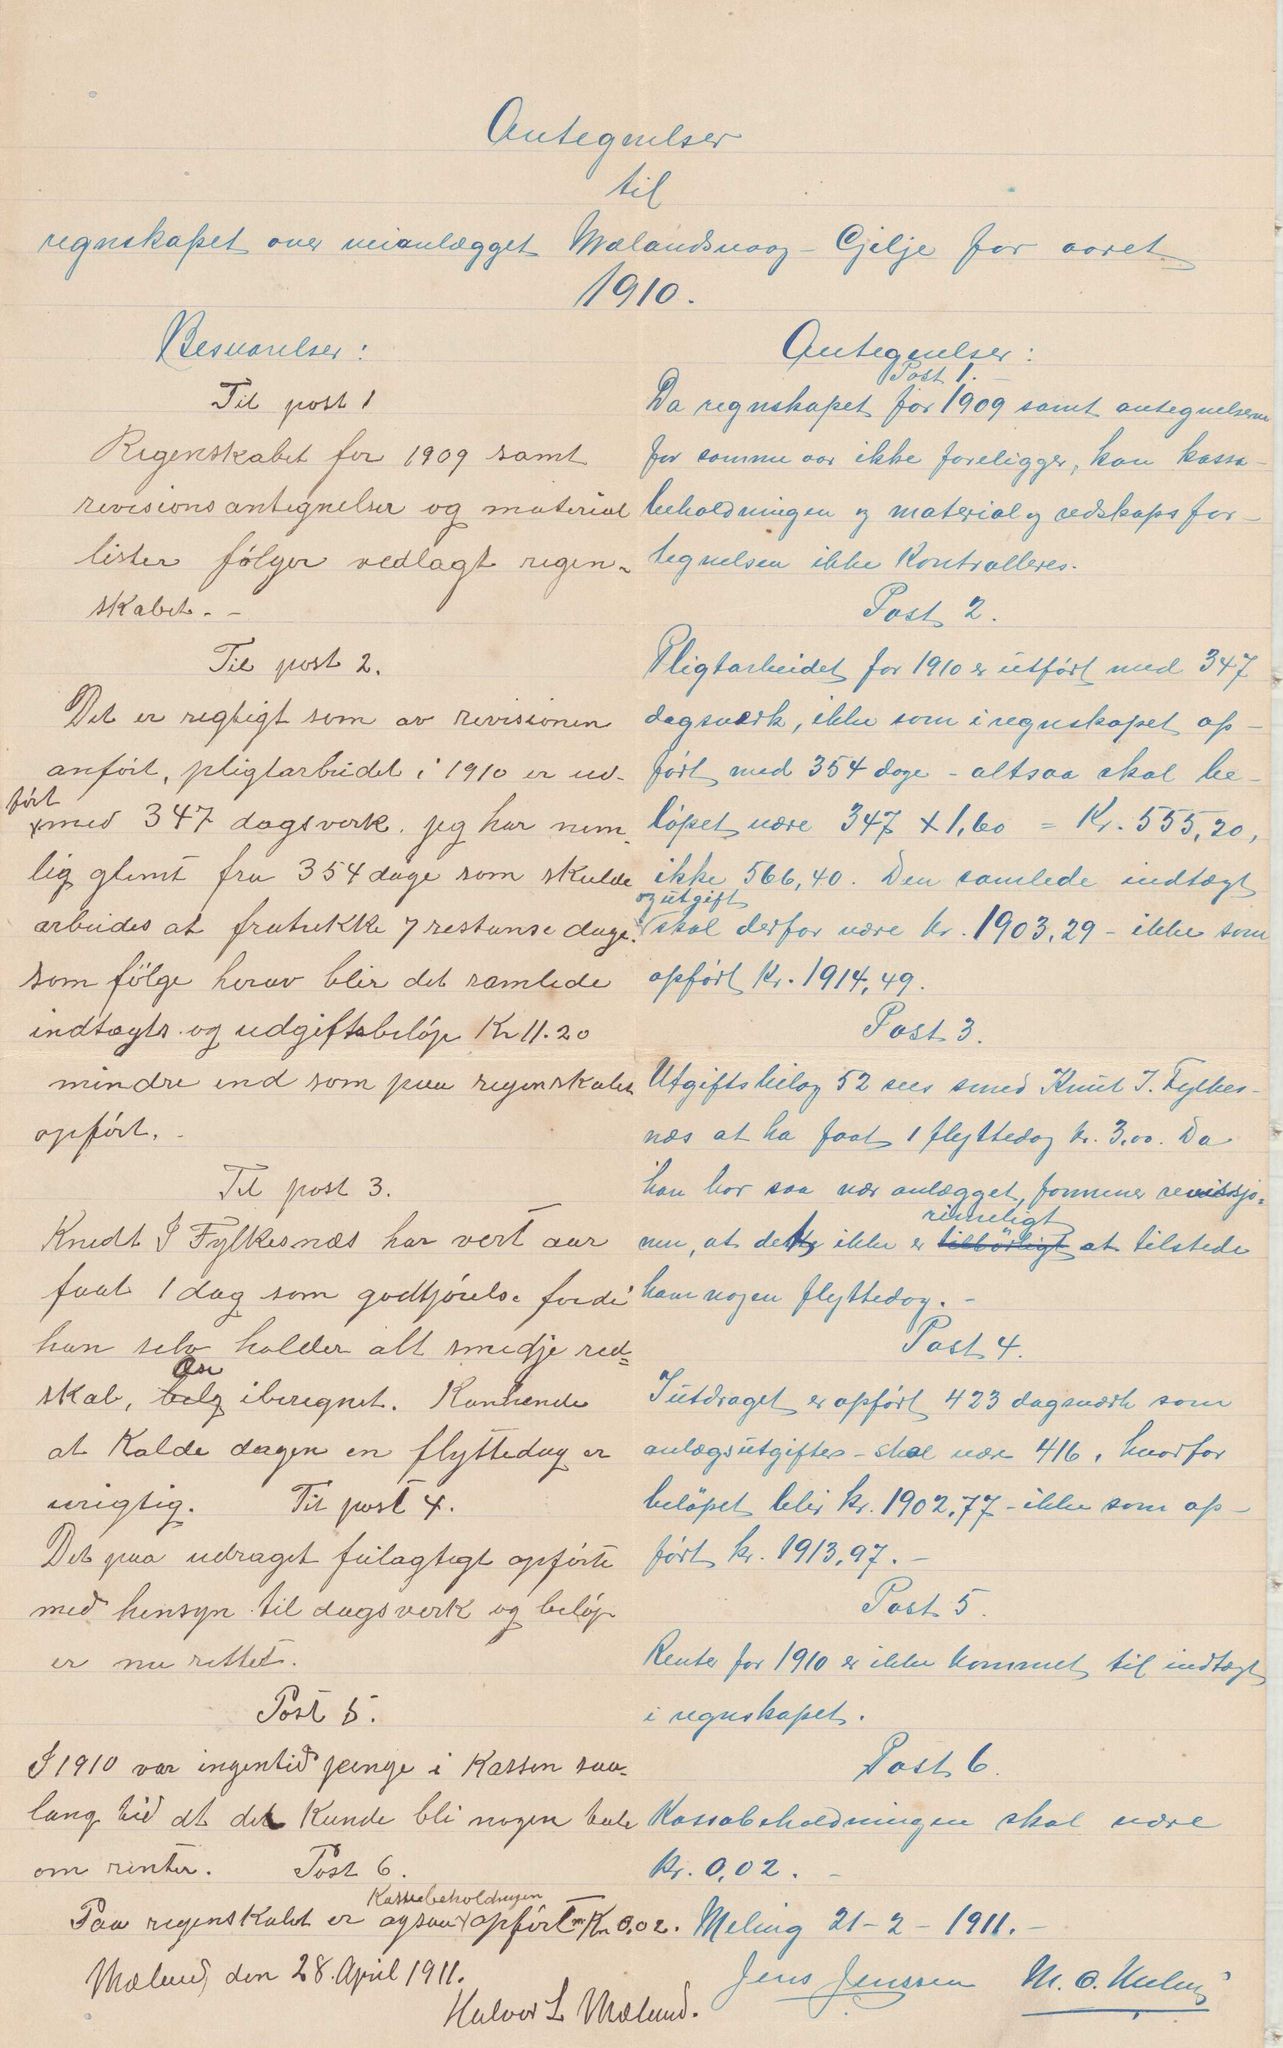 Antegnelser
til
regnskapet over veianlægget Mælandsvaag - Gjilje for aaret
1910.
Besvarelser:
Til post 1
Regenskabet for 1909 samt
revisionsantegnelser og material
lister følger vedlagt regen-
skabet. -
Til post 2.
Det er regtigt som av revisionen
anført, pligtarbeidet i 1910 er ud-
ført
med 347 dagsverk. jeg har nem-
lig glemt fra 354 dage som skulde
arbeides at fratrekke 7 restanse dage.
som følge herav blir det samlede
indtægts og udgiftsbeløp Kr 11.20
mindre end som paa regenskabet
opført. -
Til post 3.
Knudt I Fylkesnæs har vert aar
faat 1 dag som godtjørelse fordi
han selv holder alt smedje red-
skab, belg iberegnet. Kanhende
at kalde dagen en flyttedag er
urigtig. Til post 4.
Det paa udraget feilagtigt opførte
med hensyn til dagsverk og beløp
er nu rettet.
Post 5.
I 1910 var ingentid penge i Kassen saa-
lang tid at det kunde bli nogen tale
om renter. Post 6.
Kassebeholdningen
Paa regenskabet er ogsaa opført Kr 0,02.
Mæland, den 28. April 1911.
Halvor L Mæland.
Antegnelser:
Post 1. -
Da regnskapet for 1909 samt antegnelserne
for samme aar ikke foreligger, kan kassa-
beholdningen og material og redskapsfor-
tegnelsen ikke kontrolleres.
Post 2.
Pligtarbeidet for 1910 er utført med 347
dagsverk, ikke som i regnskapet op-
ført med 354 dage - altsaa skal be-
løpet være 347 x 1,60 = Kr. 555,20,
ikke 566,40. Den samlede indtægt
og utgift
skal derfor være kr. 1903,29 - ikke som
opført Kr. 1914,49.
Post 3.
Utgiftsbilag 52 sees smed Knut I. Fylkes-
næs at ha faat 1 flyttedag kr. 3,00. Da
han bor saa nær anlægget, formener revissjo-
rimeligt
nen, at dette ikke er tilbørligt at tilstede
ham nogen flyttedag. -
Post 4.
I utdraget er opført 423 dagsverk som
anlægsutgifter - skal være 416, hvorfor
beløpet blir kr. 1902,77 - ikke som op-
ført kr. 1913,97. -
Post 5.
Renter for 1910 er ikke kommet til indtægt
i regnskapet.
Post 6.
Kassabeholdningen skal være
kr. 0,02. -
Meling 21 - 2 - 1911. -
Jens Jenssen M. O.